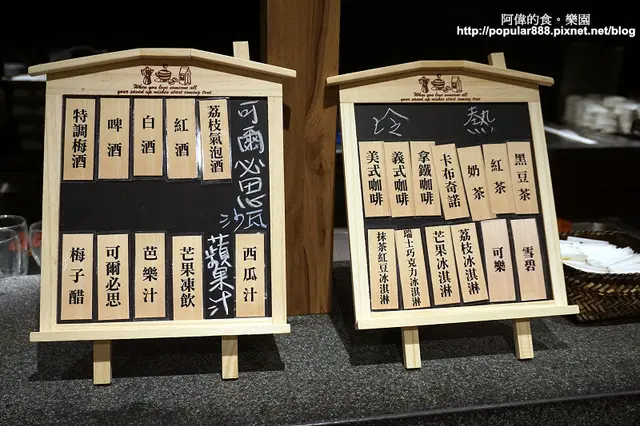 阿偉的食。樂園
http://popular888.pixnet.net/blog
When you love someone all
your saved up wishes start coming true
特調梅酒
啤酒
白酒
紅酒
荔枝氣泡酒
可爾必思
沙瓦
梅子醋
可爾必思
芭樂汁
芒果凍飲
蘋果汁
西瓜汁
When you love someone all
your saved up wishes start coming true
冷 熱
美式咖啡
義式咖啡
拿鐵咖啡
卡布奇諾
奶茶
紅茶
黑豆茶
抹茶紅豆冰淇淋
瑞士巧克力冰淇淋
芒果冰淇淋
荔枝冰淇淋
可樂
雪碧